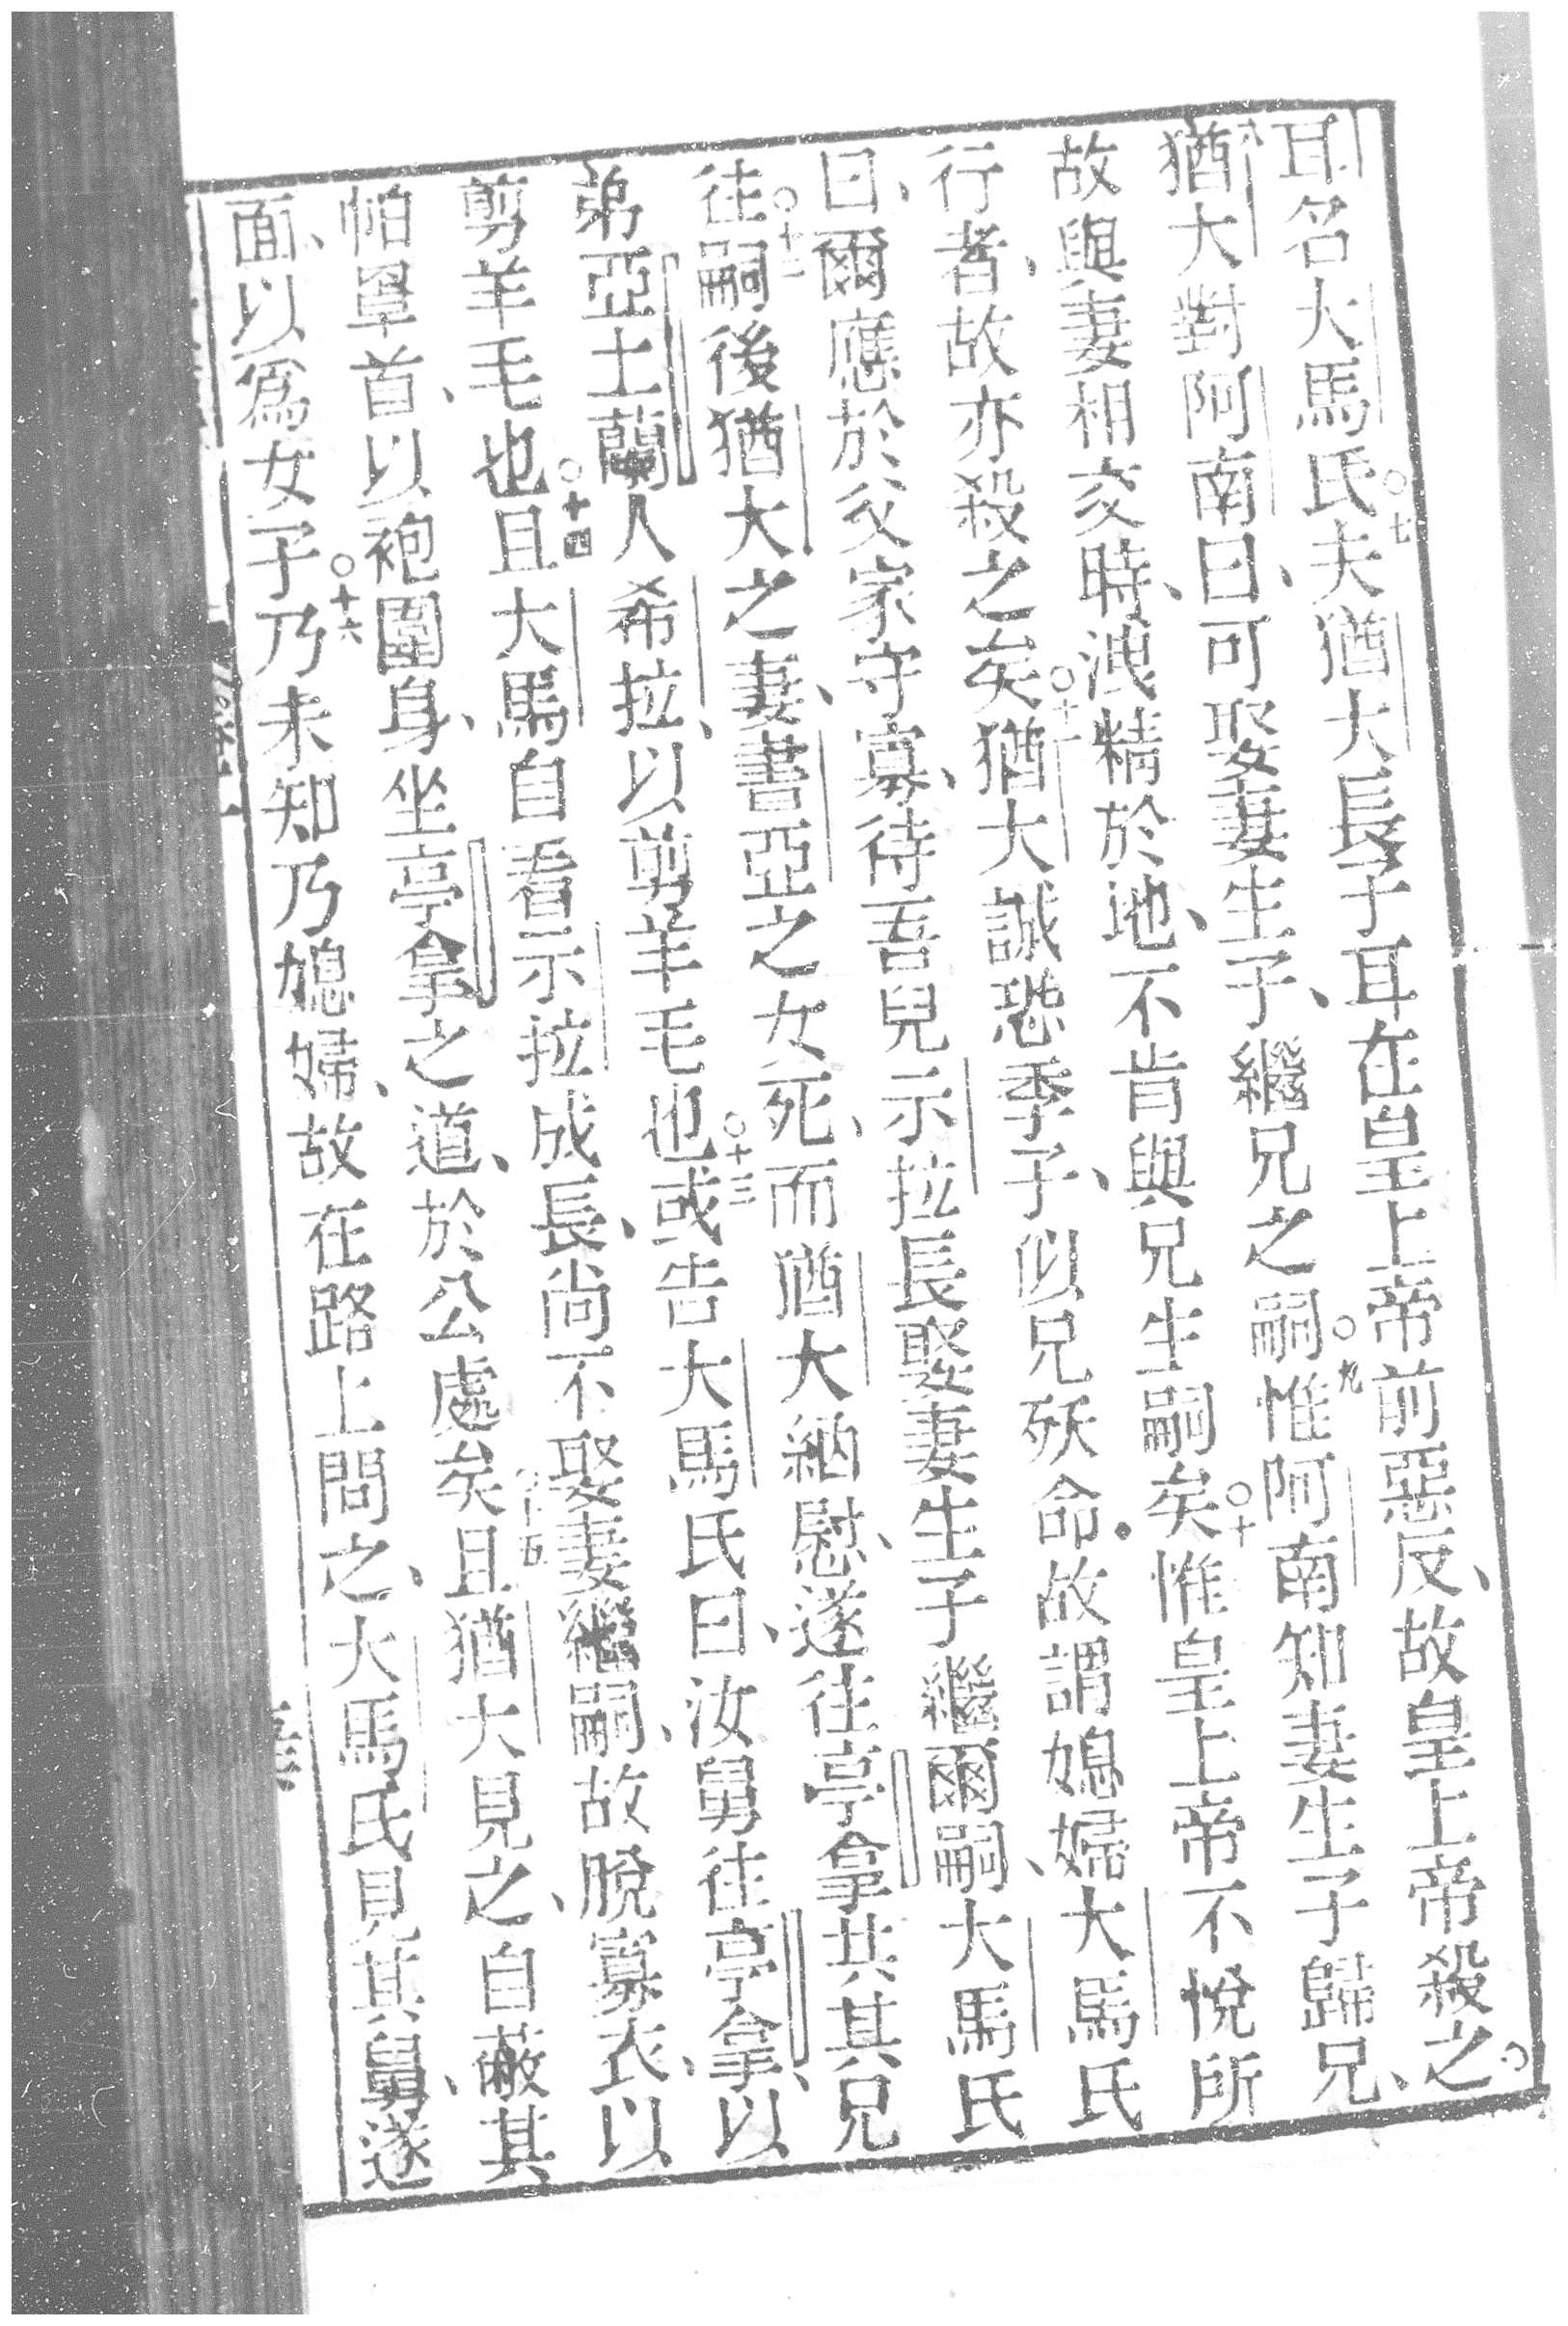 耳名大馬氏○七夫猶大長子耳在皇上帝前惡反、故皇上帝殺之。
○八猶大對阿南曰、可娶妻生子、繼兄之嗣○九惟阿南知妻生子歸兄、
故與妻相交時、洩精於地、不肯與兄生嗣矣○十惟皇上帝不悅所
行者、故亦殺之矣○十一猶大誠恐季子、似兄殀命．故謂媳婦大馬氏
曰、爾應於父家守寡、待吾兒示拉長娶妻生子繼爾嗣、大馬氏
往○十二嗣後猶大之妻、書亞之女死、而猶大納慰、遂往亭拿共其兄
弟亞土蘭人希拉、以剪羊毛也○十三或告大馬氏曰、汝舅往亭拿、以
剪羊毛也○十四且大馬自看示拉成長、尚不娶妻繼嗣、故脫寡衣、以
帕罩首、以袍圍身、坐亭拿之道、於公處矣○十五且猶大見之、自蔽其
面、以爲女子○十六乃未知乃媳婦、故在路上問之、大馬氏見其舅、遂